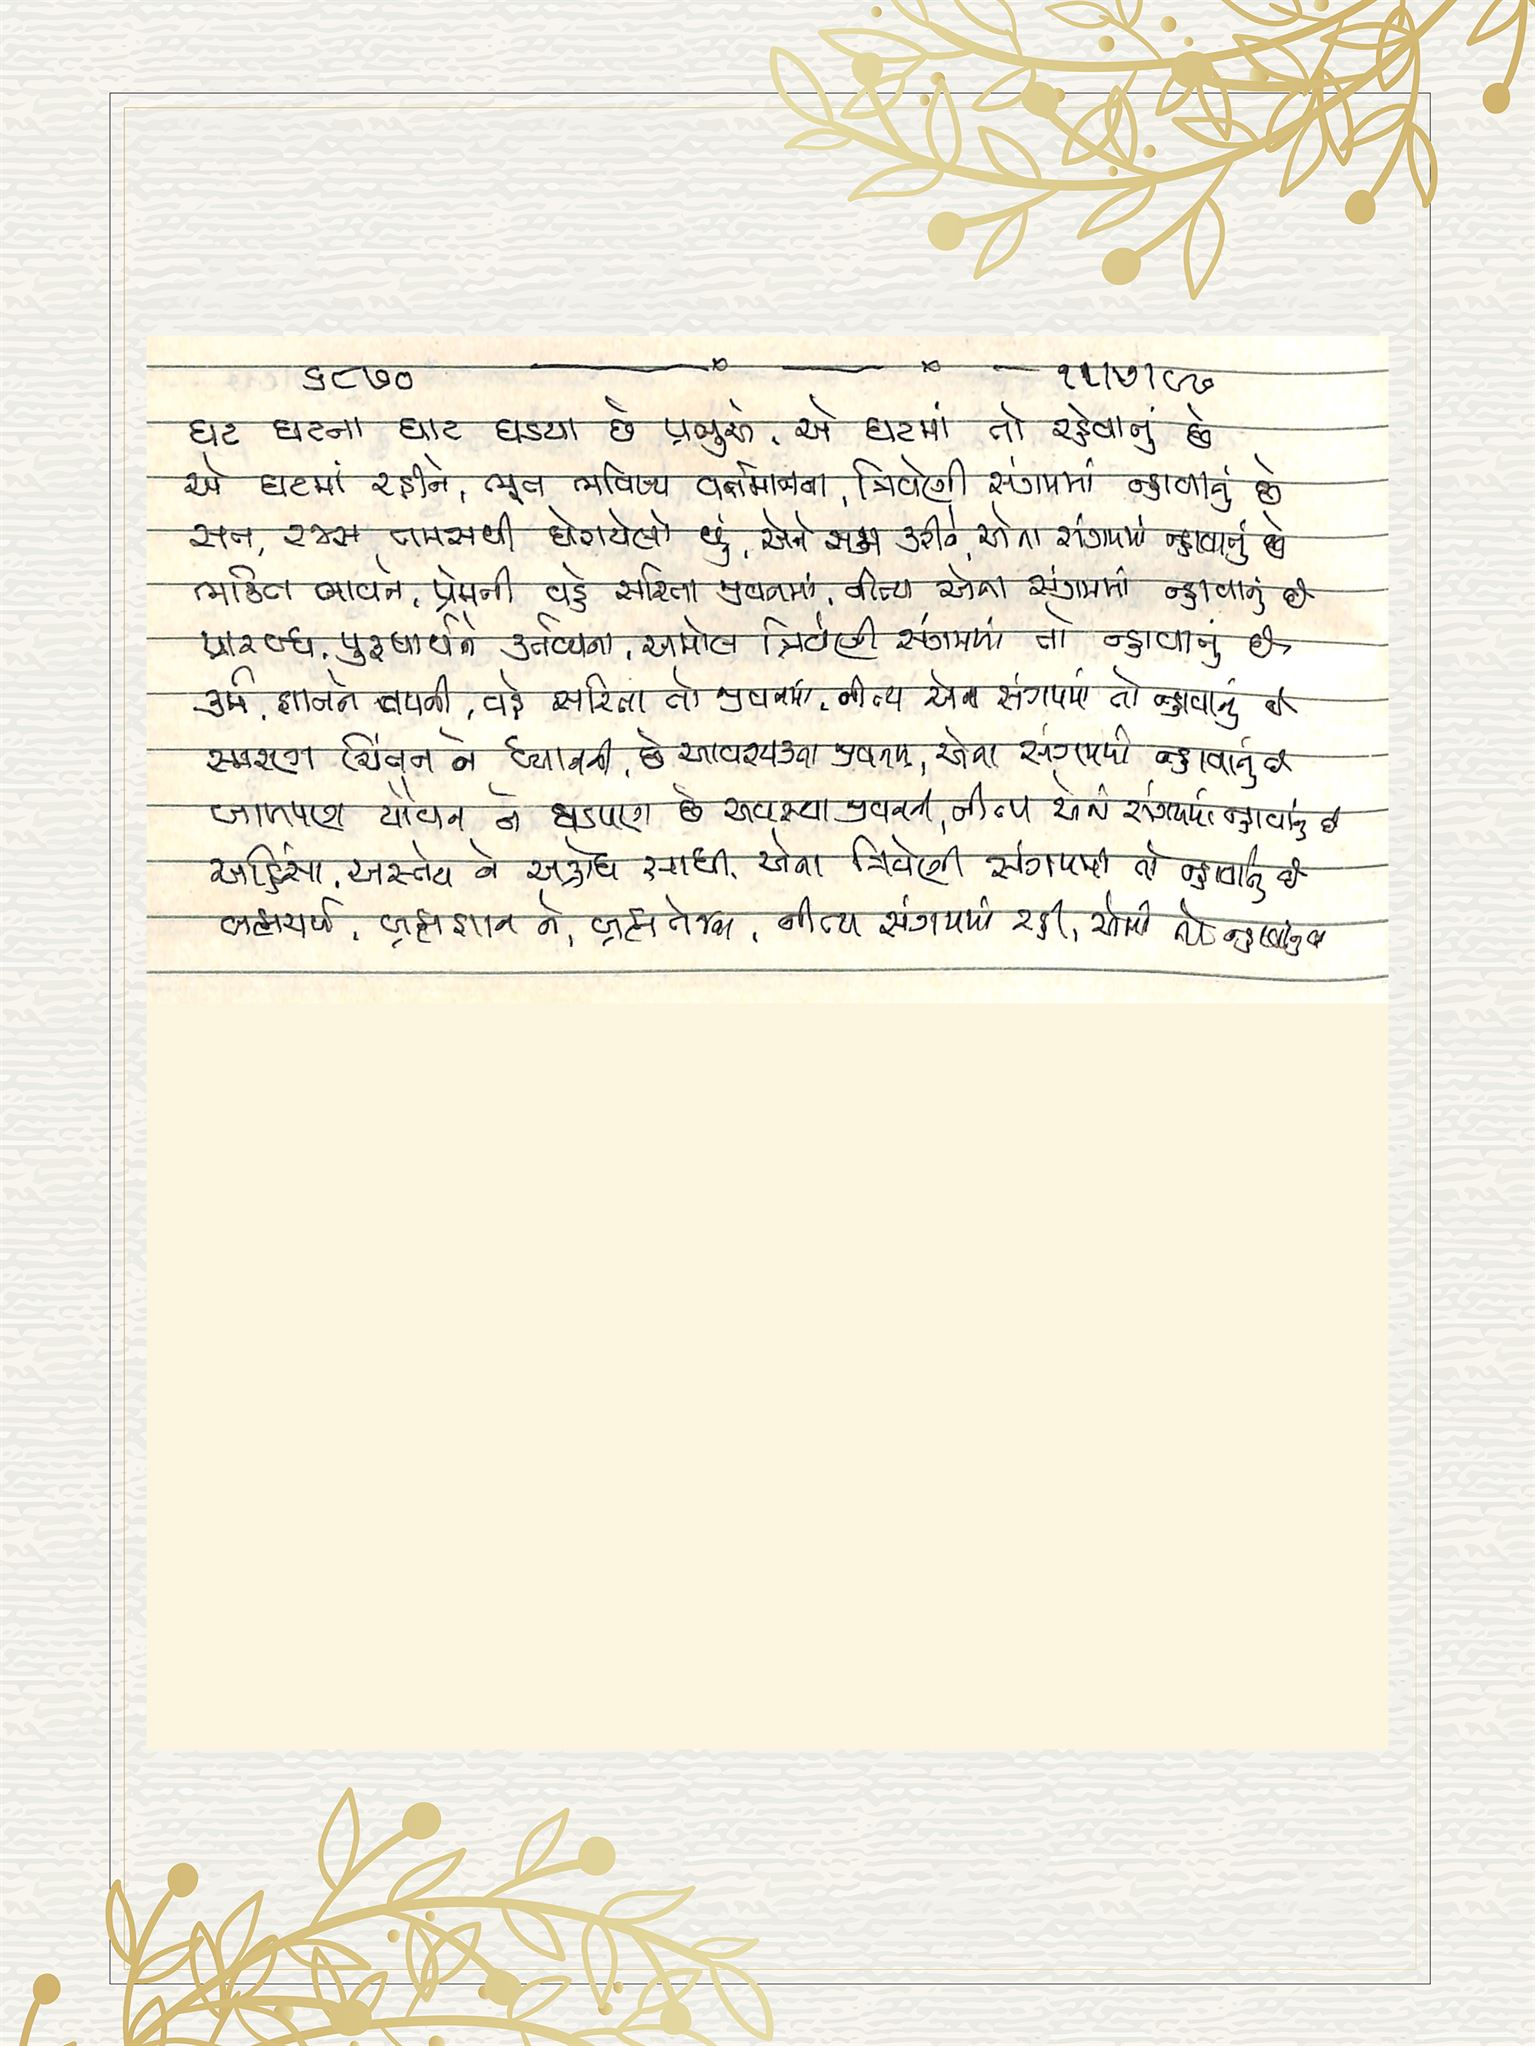 ૬૮૭૦
ઘટ ઘટના ઘાટ ઘડયા છે પ્રભુએ, એ ઘટમાં તો રહેવાનું છે
એ ઘટમાં રહીને, ભૂત ભવિષ્ય વર્તમાનના, ત્રિવેણી સંગમમાં ન્હાવાનું છે
સત, રજસ તમસથી ઘેરાયેલો છું, એને સમ કરીને, એના સંગમમાં ન્હાવાનું છે
ભક્તિ ભાવને, પ્રેમની વહે સરિતા જીવનમાં, નીત્ય એના સંગમમાં ન્હાવાનું છે
પ્રારબ્ધ, પુરુષાર્થને કર્તવ્યના, અમોલ ત્રિવેણી સંગમમાં તો ન્હાવાનું છે
કર્મ, જ્ઞાનને તપની, વહે સરિતા તો જીવનમાં, નીત્ય એના સંગમમાં તો ન્હાવાનું છે
સ્મરણ ચિંતન ને ધ્યાનની, છે આવશ્યકતા જીવનમાં, એના સંગમમાં ન્હાવાનું છે
બાળપણ યૌવન ને ઘડપણ છે અવસ્થા જીવનની, નીત્ય એના સંગમમાં ન્હાવાનું છે
અહિંસા, અસ્તેય ને અક્રોધ સાધી, એના ત્રિવેણી સંગમમાં તો ન્હાવાનું છે
બ્રહ્મચર્ય, બ્રહ્મજ્ઞાન ને, બ્રહ્મતેજના, નીત્ય સંગમમાં રહી, એમાં તો ન્હાવાનું છે